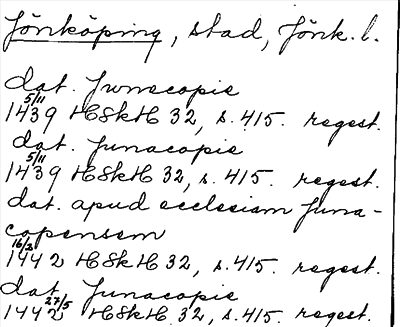 Jönköping, stad, Jönk. l.
dat. Junacopie
1439 5/11 HSkH 32, s. 415. regest.
dat. Junacopie
1439 5/11 HSkH 32, s. 415. regest.
dat. apud ecclesiam Juna-
copensem
1442 16/3 HSkH 32, s. 415. regest.
dat. Junacopie
1442 27/5 HSkH 32, s. 415. regest.